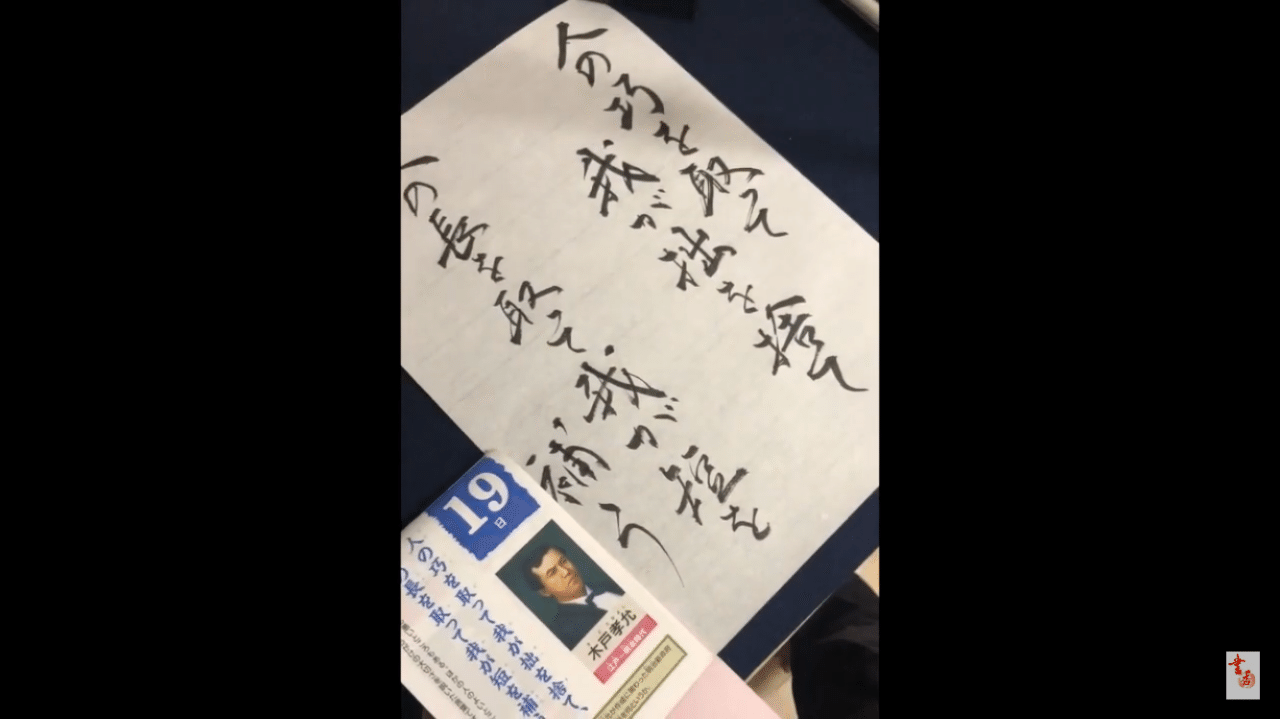 人の巧を取って
我が拙を捨て
人の長を取って
我が短を
補う
19
日
木戸孝允
江戸〜明治時代
人の巧を取って我が拙を捨て、
の長を取って我が短を補